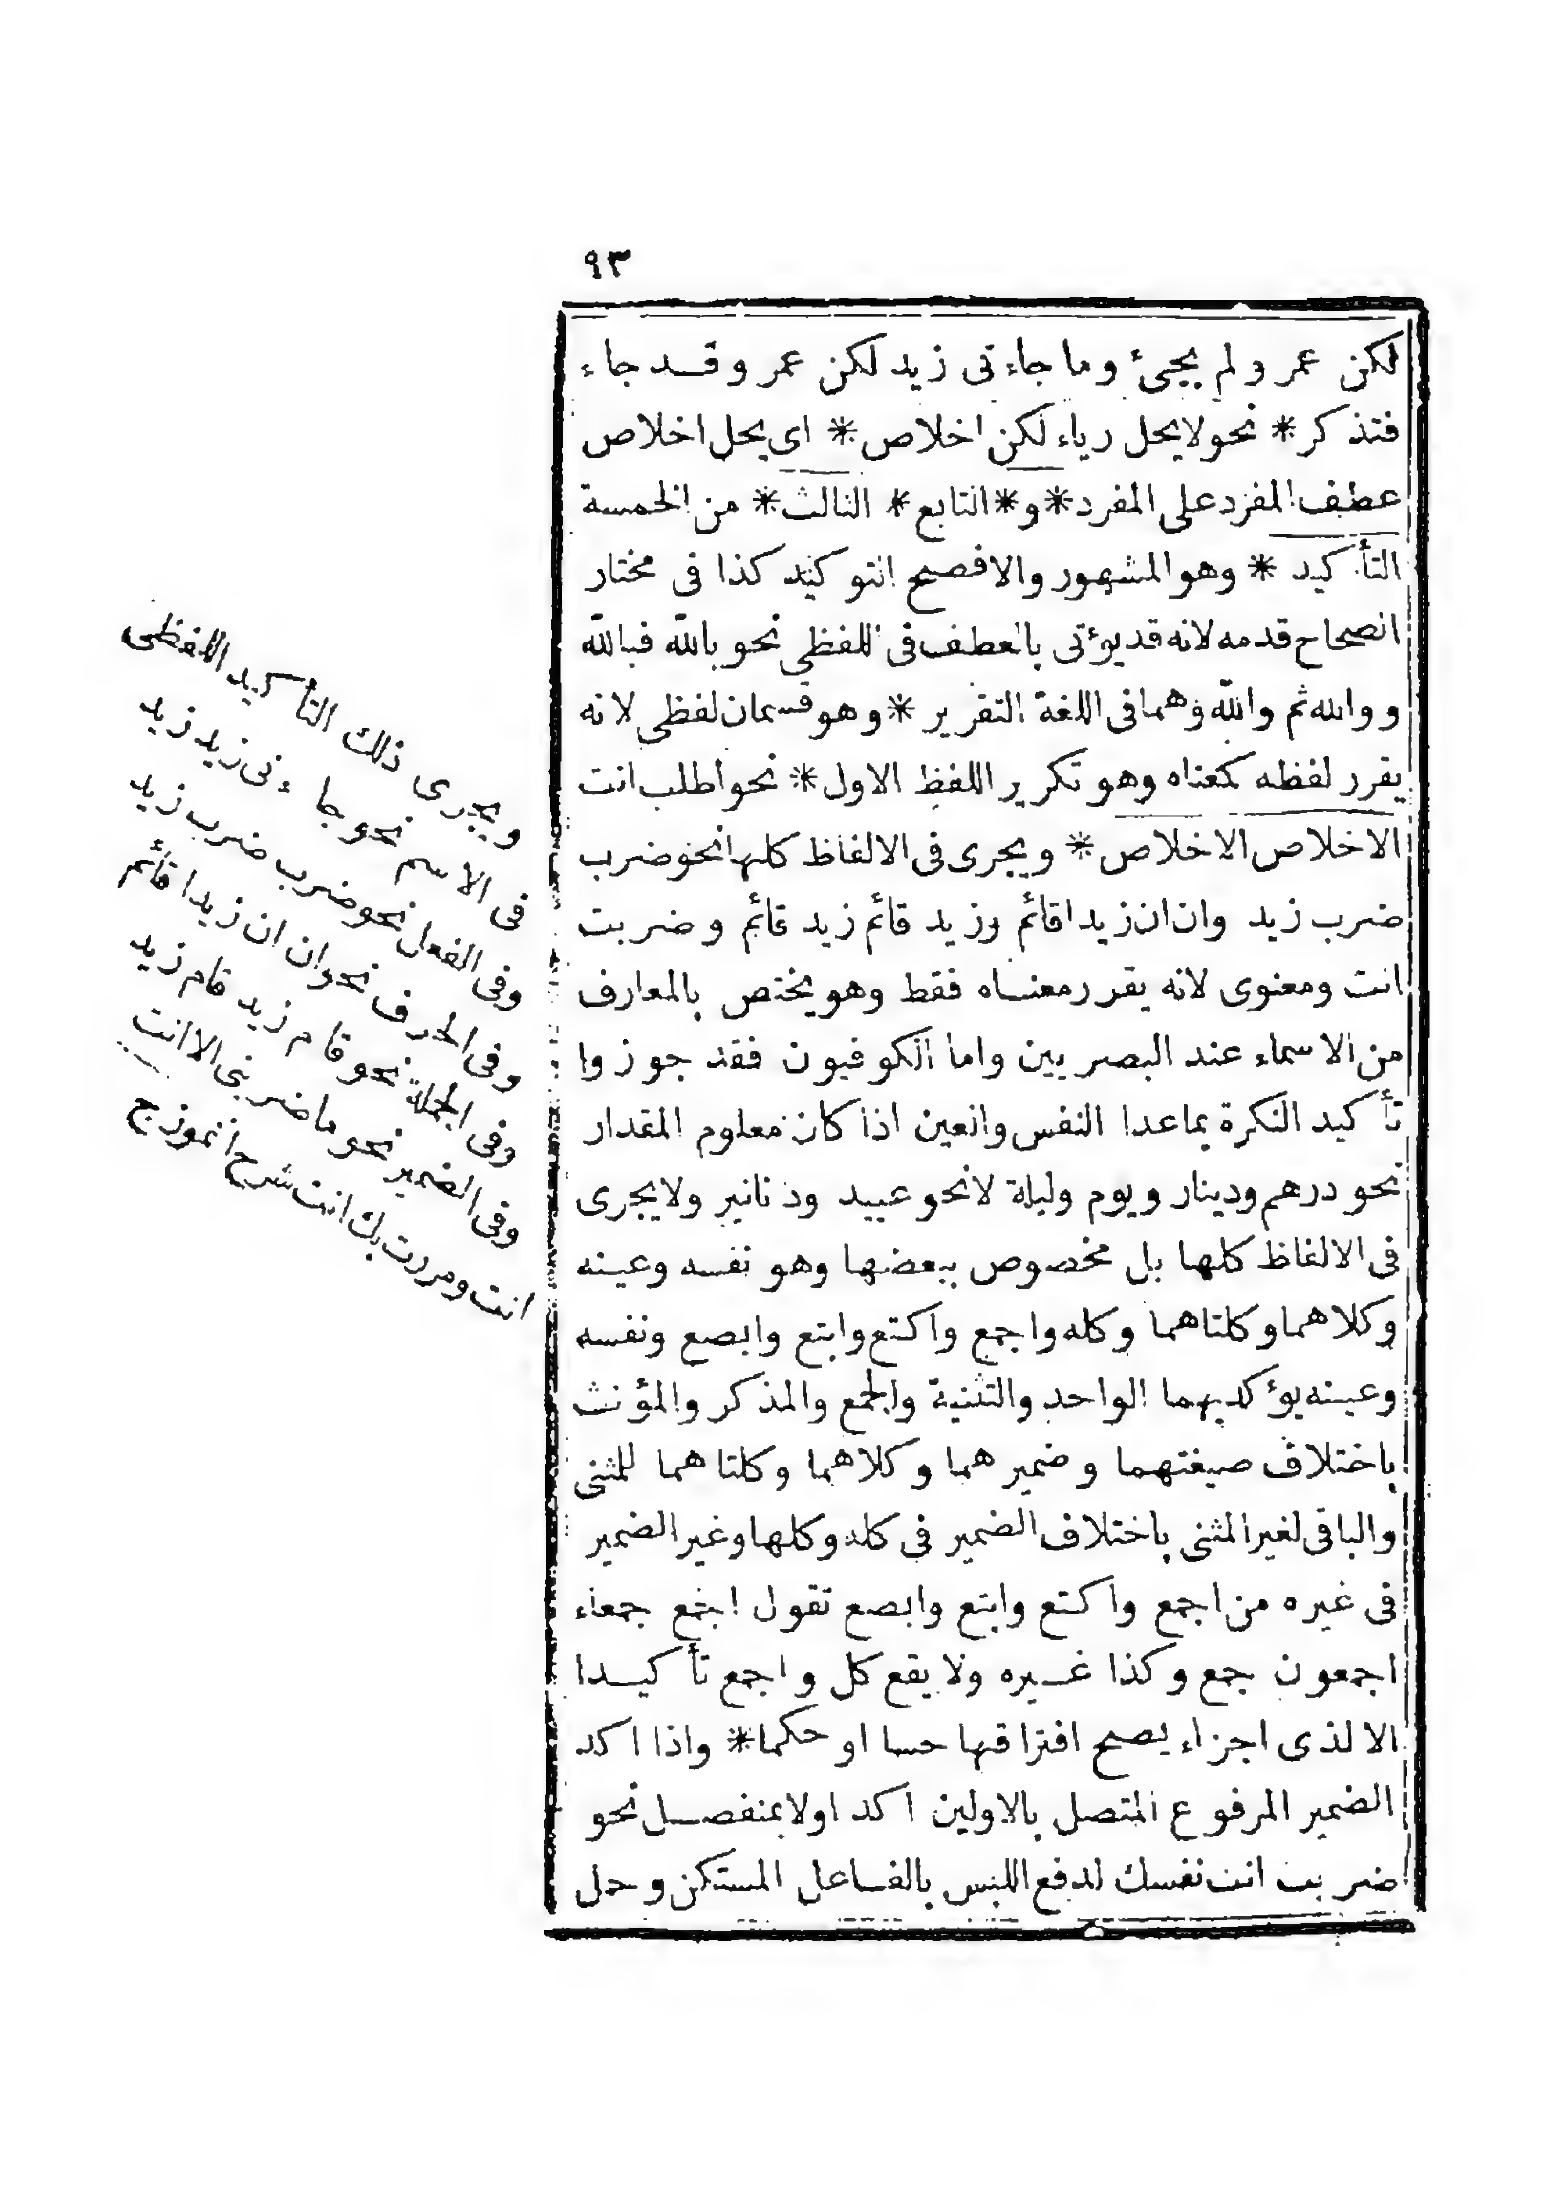 ٩٣
لكن عمر ولم يجئ وما جاءنى زيد لكن عمر وقد جاء
فتذكر * نحو لا يحل رياء لكن اخلاص * اى يحل اخلاص
عطف المفرد على المفرد * و * التابع * الثالث * من الخمسة
التأكيد * وهو المشهور والافصح التوكيد كذا فى مختار
الصحاح قدمه لانه قد يؤتى بالعطف فى اللفظى نحو بالله فبالله
ووالله ثم والله وهما فى اللغة التقرير * وهو قسمان لفظى لانه
يقرر لفظه كمعناه وهو تكرير اللفظ الاول * نحو اطلب انت
الاخلاص الاخلاص * ويجرى فى الالفاظ كلها نحو ضرب
ضرب زيد وان ان زيدا قائم وزيد قائم زيد قائم وضربت
انت ومعنوى لانه يقرر معناه فقط وهو يختص بالمعارف
من الاسماء عند البصريين واما الكوفيون فقد جوزوا
تأكيد النكرة بماعدا النفس والعين اذا كان معلوم المقدار
نحو درهم ودينار ويوم وليلة لا نحو عبيد ودنانير ولا يجرى
فى الالفاظ كلها بل مخصوص ببعضها وهو نفسه وعينه
وكلاهما وكلتاهما وكله واجمع واكتع وابتع وابصع ونفسه
وعينه يؤكد بهما الواحد والتثنية والجمع والمذكر والمؤنث
باختلاف صيغتهما وضميرهما وكلاهما وكلتاهما للمثنى
والباقى لغير المثنى باختلاف الضمير فى كله وكلها وغير الضمير
فى غيره من اجمع واكتع وابتع وابصع تقول اجمع جمعاء
اجمعون جمع وكذا غيره ولا يقع كل واجمع تأكيدا
الا لذى اجزاء يصح افتراقها حسا او حكما * واذا اكد
الضمير المرفوع المتصل بالاولين اكد اولا بمنفصل نحو
ضربت انت نفسك لدفع اللبس بالفاعل المستكن وحمل
ويجرى ذلك التأكيد اللفظى
فى الاسم نحو جاءنى زيد زيد
وفى الفعل نحو ضرب ضرب زيد
وفى الحرف نحو ان ان زيدا قائم
وفى الجملة نحو قام زيد قام زيد
وفى الضمير نحو ما ضربنى الا انت
انت ومررت بك انت شرح انموزج